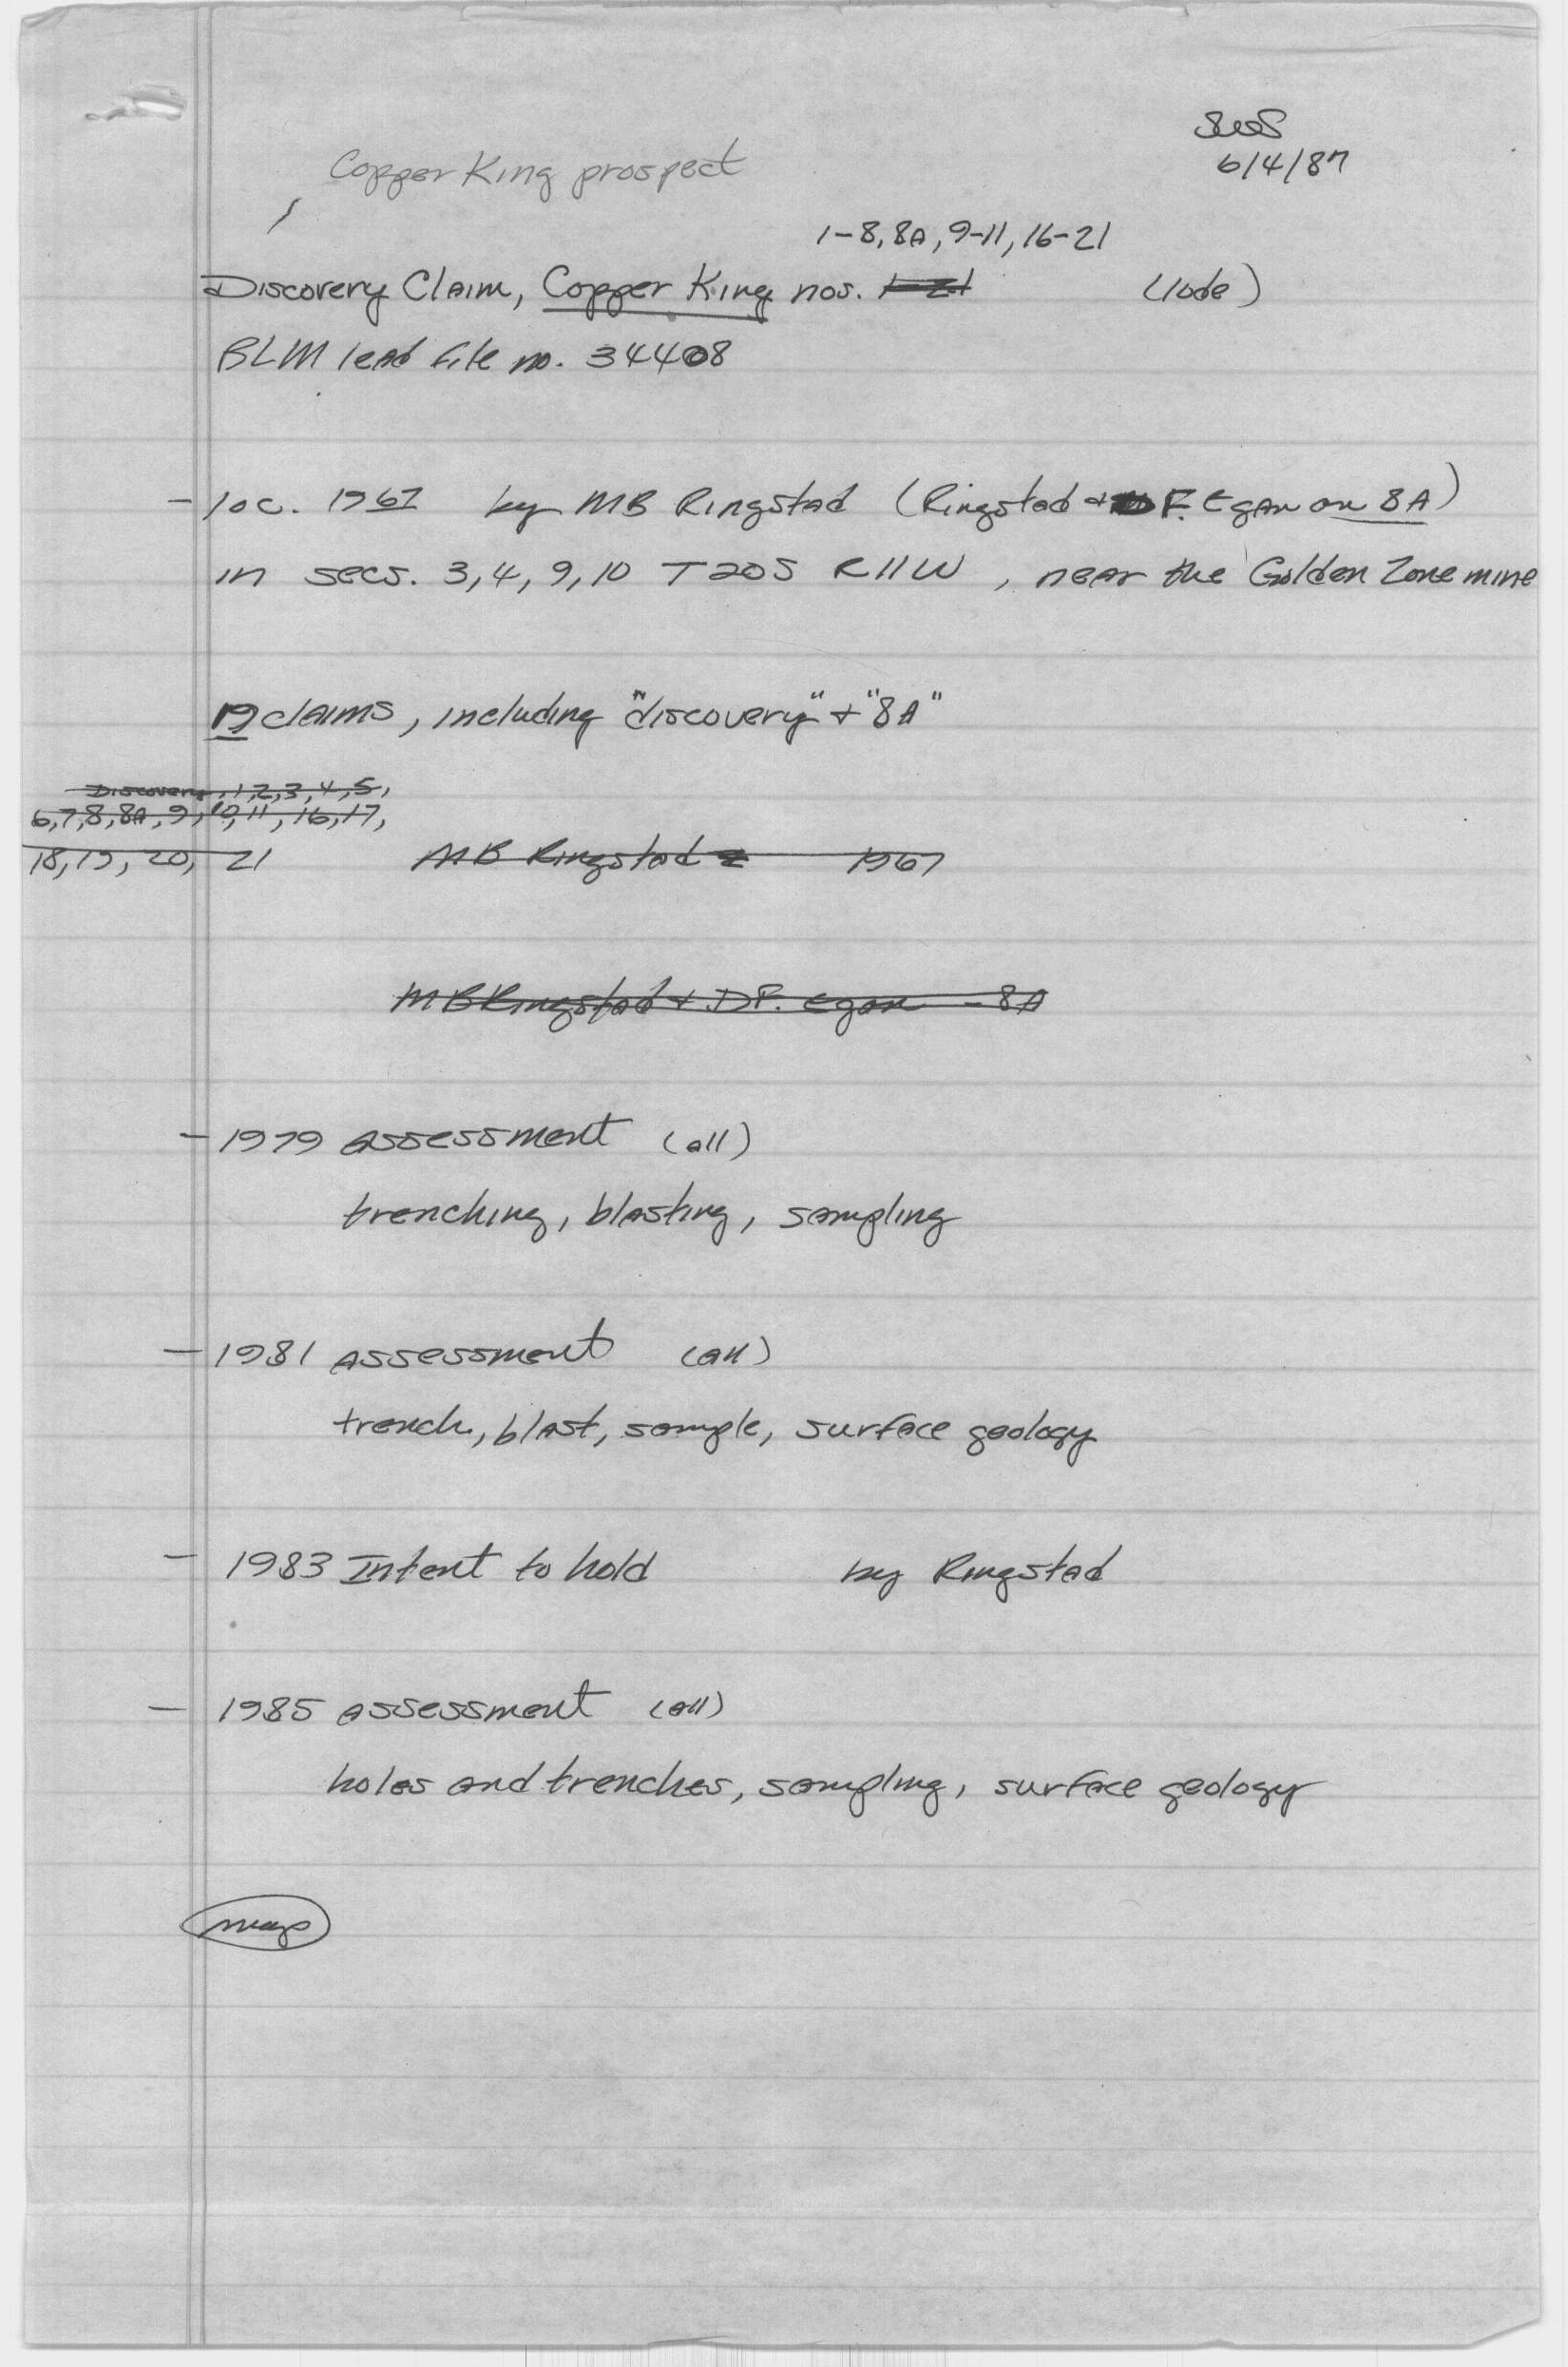 6/4/87
Copper King prospect
1-8, 8A, 9-11, 16-21
Discovery Claim, Copper King nos. 1-21 (lode)
BLM lead file no. 34408
- loc. 1967 by MB Ringstad (Ringstad + F. Egan on 8A)
in secs. 3,4,9,10 T20S R11W, near the Golden Zone mine
19 claims, including "discovery" + "8A"
Discovery, 1,2,3,4,5,
6,7,8,8A,9,10,11,16,17,
18,19,20,21 MB Ringstad 1967
MB Ringstad + DF. Egan - 8A
- 1979 assessment (all)
trenching, blasting, sampling
- 1981 assessment (all)
trench, blast, sample, surface geology
- 1983 Intent to hold by Ringstad
- 1985 assessment (all)
holes and trenches, sampling, surface geology
map